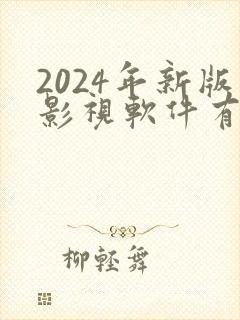 2024年新版
影視軟件有
柳輕舞